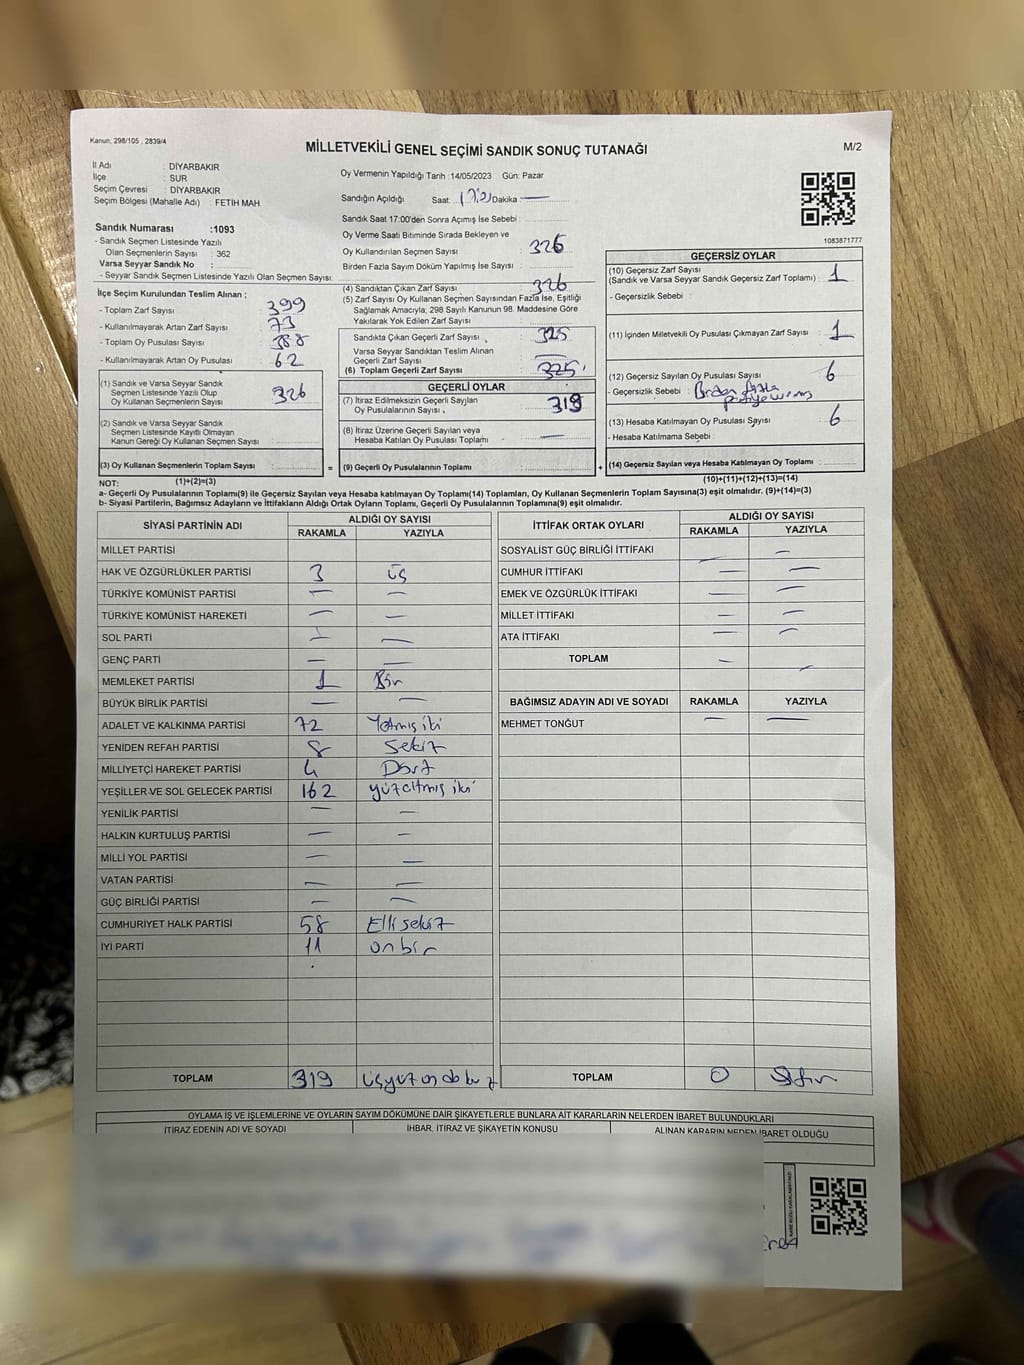 Kanun: 298/105 , 2839/4
MİLLETVEKİLİ GENEL SEÇİMİ SANDIK SONUÇ TUTANAĞI
M/2
İl Adı : DİYARBAKIR
İlçe : SUR
Seçim Çevresi : DİYARBAKIR
Seçim Bölgesi (Mahalle Adı) : FETİH MAH.
Oy Vermenin Yapıldığı Tarih :14/05/2023 Gün: Pazar
Sandığın Açıldığı Saat: Dakika —
Sandık Saat 17:00'den Sonra Açılmış İse Sebebi :
Oy Verme Saati Bitiminde Sırada Bekleyen ve
Oy Kullandırılan Seçmen Sayısı : 326
Birden Fazla Sayım Döküm Yapılmış İse Sayısı :
1083871777
Sandık Numarası :1093
- Sandık Seçmen Listesinde Yazılı
Olan Seçmenlerin Sayısı : 362
Varsa Seyyar Sandık No :
- Seyyar Sandık Seçmen Listesinde Yazılı Olan Seçmen Sayısı:
İlçe Seçim Kurulundan Teslim Alınan ;
- Toplam Zarf Sayısı : 399
- Kullanılmayarak Artan Zarf Sayısı : 73
- Toplam Oy Pusulası Sayısı : 388
- Kullanılmayarak Artan Oy Pusulası : 62
(1) Sandık ve Varsa Seyyar Sandık
Seçmen Listesinde Yazılı Olup
Oy Kullanan Seçmenlerin Sayısı : 326
(2) Sandık ve Varsa Seyyar Sandık
Seçmen Listesinde Kayıtlı Olmayan
Kanun Gereği Oy Kullanan Seçmen Sayısı :
(3) Oy Kullanan Seçmenlerin Toplam Sayısı :
(1)+(2)=(3)
(4) Sandıktan Çıkan Zarf Sayısı : 326
(5) Zarf Sayısı Oy Kullanan Seçmen Sayısından Fazla İse, Eşitliği
Sağlamak Amacıyla, 298 Sayılı Kanunun 98. Maddesine Göre
Yakılarak Yok Edilen Zarf Sayısı :
Sandıkta Çıkan Geçerli Zarf Sayısı : 325
Varsa Seyyar Sandıktan Teslim Alınan
Geçerli Zarf Sayısı : —
(6) Toplam Geçerli Zarf Sayısı : 325
GEÇERLİ OYLAR
(7) İtiraz Edilmeksizin Geçerli Sayılan
Oy Pusulalarının Sayısı : 319
(8) İtiraz Üzerine Geçerli Sayılan veya
Hesaba Katılan Oy Pusulası Toplamı : —
= (9) Geçerli Oy Pusulalarının Toplamı :
GEÇERSİZ OYLAR
(10) Geçersiz Zarf Sayısı
(Sandık ve Varsa Seyyar Sandık Geçersiz Zarf Toplamı) : 1
- Geçersizlik Sebebi :
(11) İçinden Milletvekili Oy Pusulası Çıkmayan Zarf Sayısı : 1
(12) Geçersiz Sayılan Oy Pusulası Sayısı : 6
- Geçersizlik Sebebi : Birden fazla
(13) Hesaba Katılmayan Oy Pusulası Sayısı : 6
- Hesaba Katılmama Sebebi :
+ (14) Geçersiz Sayılan veya Hesaba Katılmayan Oy Toplamı :
(10)+(11)+(12)+(13)=(14)
NOT:
a- Geçerli Oy Pusulalarının Toplamı(9) ile Geçersiz Sayılan veya Hesaba katılmayan Oy Toplamı(14) Toplamları, Oy Kullanan Seçmenlerin Toplam Sayısına(3) eşit olmalıdır. (9)+(14)=(3)
b- Siyasi Partilerin, Bağımsız Adayların ve İttifakların Aldığı Ortak Oyların Toplamı, Geçerli Oy Pusulalarının Toplamına(9) eşit olmalıdır.
SİYASİ PARTİNİN ADI ALDIĞI OY SAYISI
RAKAMLA YAZIYLA
MİLLET PARTİSİ
HAK VE ÖZGÜRLÜKLER PARTİSİ 3 üç
TÜRKİYE KOMÜNİST PARTİSİ — —
TÜRKİYE KOMÜNİST HAREKETİ — —
SOL PARTİ — —
GENÇ PARTİ — —
MEMLEKET PARTİSİ 1 Bir
BÜYÜK BİRLİK PARTİSİ — —
ADALET VE KALKINMA PARTİSİ 72 Yetmiş iki
YENİDEN REFAH PARTİSİ 8 Sekiz
MİLLİYETÇİ HAREKET PARTİSİ 4 Dört
YEŞİLLER VE SOL GELECEK PARTİSİ 162 yüzaltmış iki
YENİLİK PARTİSİ — —
HALKIN KURTULUŞ PARTİSİ — —
MİLLİ YOL PARTİSİ — —
VATAN PARTİSİ — —
GÜÇ BİRLİĞİ PARTİSİ — —
CUMHURİYET HALK PARTİSİ 58 Elli sekiz
İYİ PARTİ 11 on bir
TOPLAM 319 üçyüz on dokuz
İTTİFAK ORTAK OYLARI ALDIĞI OY SAYISI
RAKAMLA YAZIYLA
SOSYALİST GÜÇ BİRLİĞİ İTTİFAKI — —
CUMHUR İTTİFAKI — —
EMEK VE ÖZGÜRLÜK İTTİFAKI — —
MİLLET İTTİFAKI — —
ATA İTTİFAKI — —
TOPLAM — —
BAĞIMSIZ ADAYIN ADI VE SOYADI RAKAMLA YAZIYLA
MEHMET TONĞUT — —
TOPLAM 0 Sıfır
OYLAMA İŞ VE İŞLEMLERİNE VE OYLARIN SAYIM DÖKÜMÜNE DAİR ŞİKAYETLERLE BUNLARA AİT KARARLARIN NELERDEN İBARET BULUNDUKLARI
İTİRAZ EDENİN ADI VE SOYADI İHBAR, İTİRAZ VE ŞİKAYETİN KONUSU ALINAN KARARIN NEDEN İBARET OLDUĞU